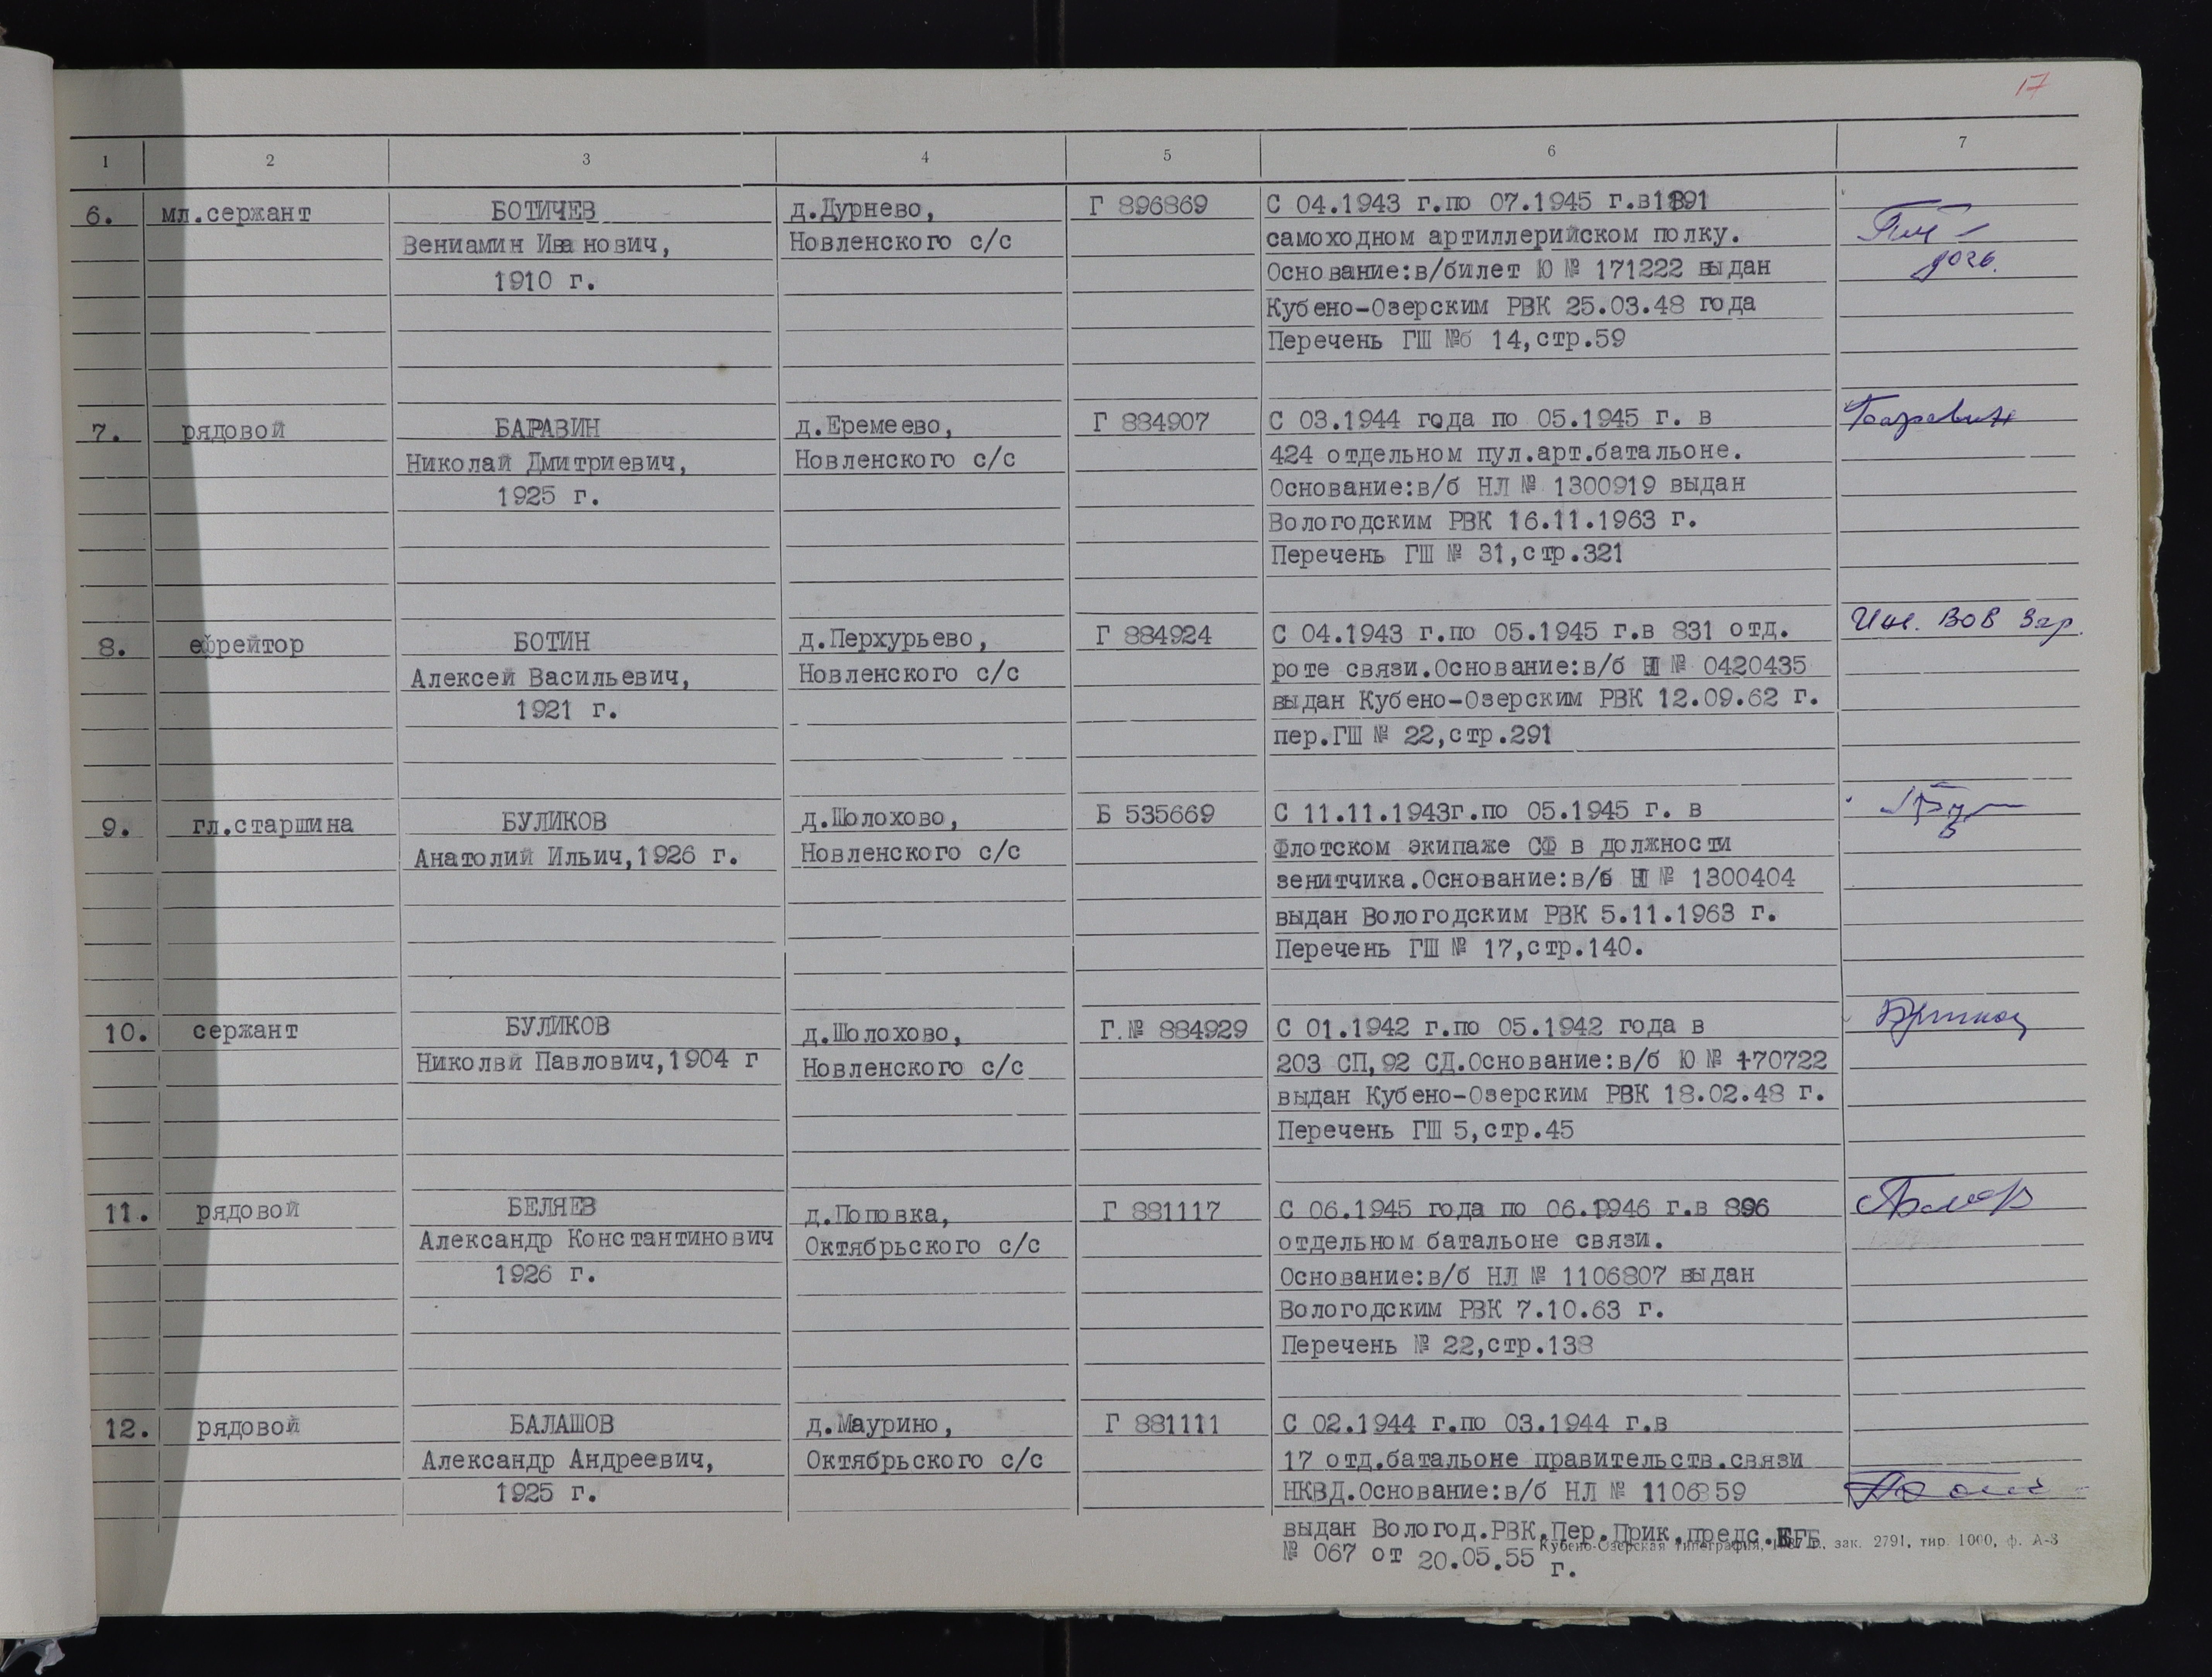 17
1 2 3 4 5 6 7
6. мл.сержант БОТИЧЕВ д.Дурнево, Г 896869 С 04.1943 г.по 07.1945 г.в
Вениамин Иванович, Новленского с/с самоходном артиллерийском полку.
1910 г. Основание:в/билет Ю № 171222 выдан
Кубено-Озерским РВК 25.03.48 года
Перечень ГШ №б 14,стр.59
7. рядовой БАРАВИН д.Еремеево, Г 884907 С 03.1944 года по 05.1945 г. в Баравин
Николай Дмитриевич, Новленского с/с 424 отдельном пул.арт.батальоне.
1925 г. Основание:в/б НЛ № 1300919 выдан
Вологодским РВК 16.11.1963 г.
Перечень ГШ № 31,стр.321
8. ефрейтор БОТИН д.Перхурьево, Г 884924 С 04.1943 г.по 05.1945 г.в 831 отд. Инв. ВОВ 3гр.
Алексей Васильевич, Новленского с/с роте связи.Основание:в/б № 0420435
1921 г. выдан Кубено-Озерским РВК 12.09.62 г.
пер.ГШ № 22,стр.291
9. гл.старшина БУЛИКОВ д.Шолохово, Б 535669 С 11.11.1943г.по 05.1945 г. в
Анатолий Ильич,1926 г. Новленского с/с Флотском экипаже СФ в должности
зенитчика.Основание:в/б № 1300404
выдан Вологодским РВК 5.11.1963 г.
Перечень ГШ № 17,стр.140.
10. сержант БУЛИКОВ д.Шолохово, Г.№ 884929 С 01.1942 г.по 05.1942 года в
Николай Павлович,1904 г Новленского с/с 203 СП,92 СД.Основание:в/б Ю № 170722
выдан Кубено-Озерским РВК 18.02.48 г.
Перечень ГШ 5,стр.45
11. рядовой БЕЛЯЕВ д.Поповка, Г 881117 С 06.1945 года по 06.1946 г.в 896
Александр Константинович Октябрьского с/с отдельном батальоне связи.
1926 г. Основание:в/б НЛ № 1106807 выдан
Вологодским РВК 7.10.63 г.
Перечень № 22,стр.138
12. рядовой БАЛАШОВ д.Маурино, Г 881111 С 02.1944 г.по 03.1944 г.в
Александр Андреевич, Октябрьского с/с 17 отд.батальоне правительств.связи
1925 г. НКВД.Основание:в/б НЛ № 1106859
выдан Вологод.РВК.Пер.Прик.предс.КГБ
№ 067 от 20.05.55 г.
Кубено-Озерская типография, зак. 2791, тир. 1000, ф. А-3